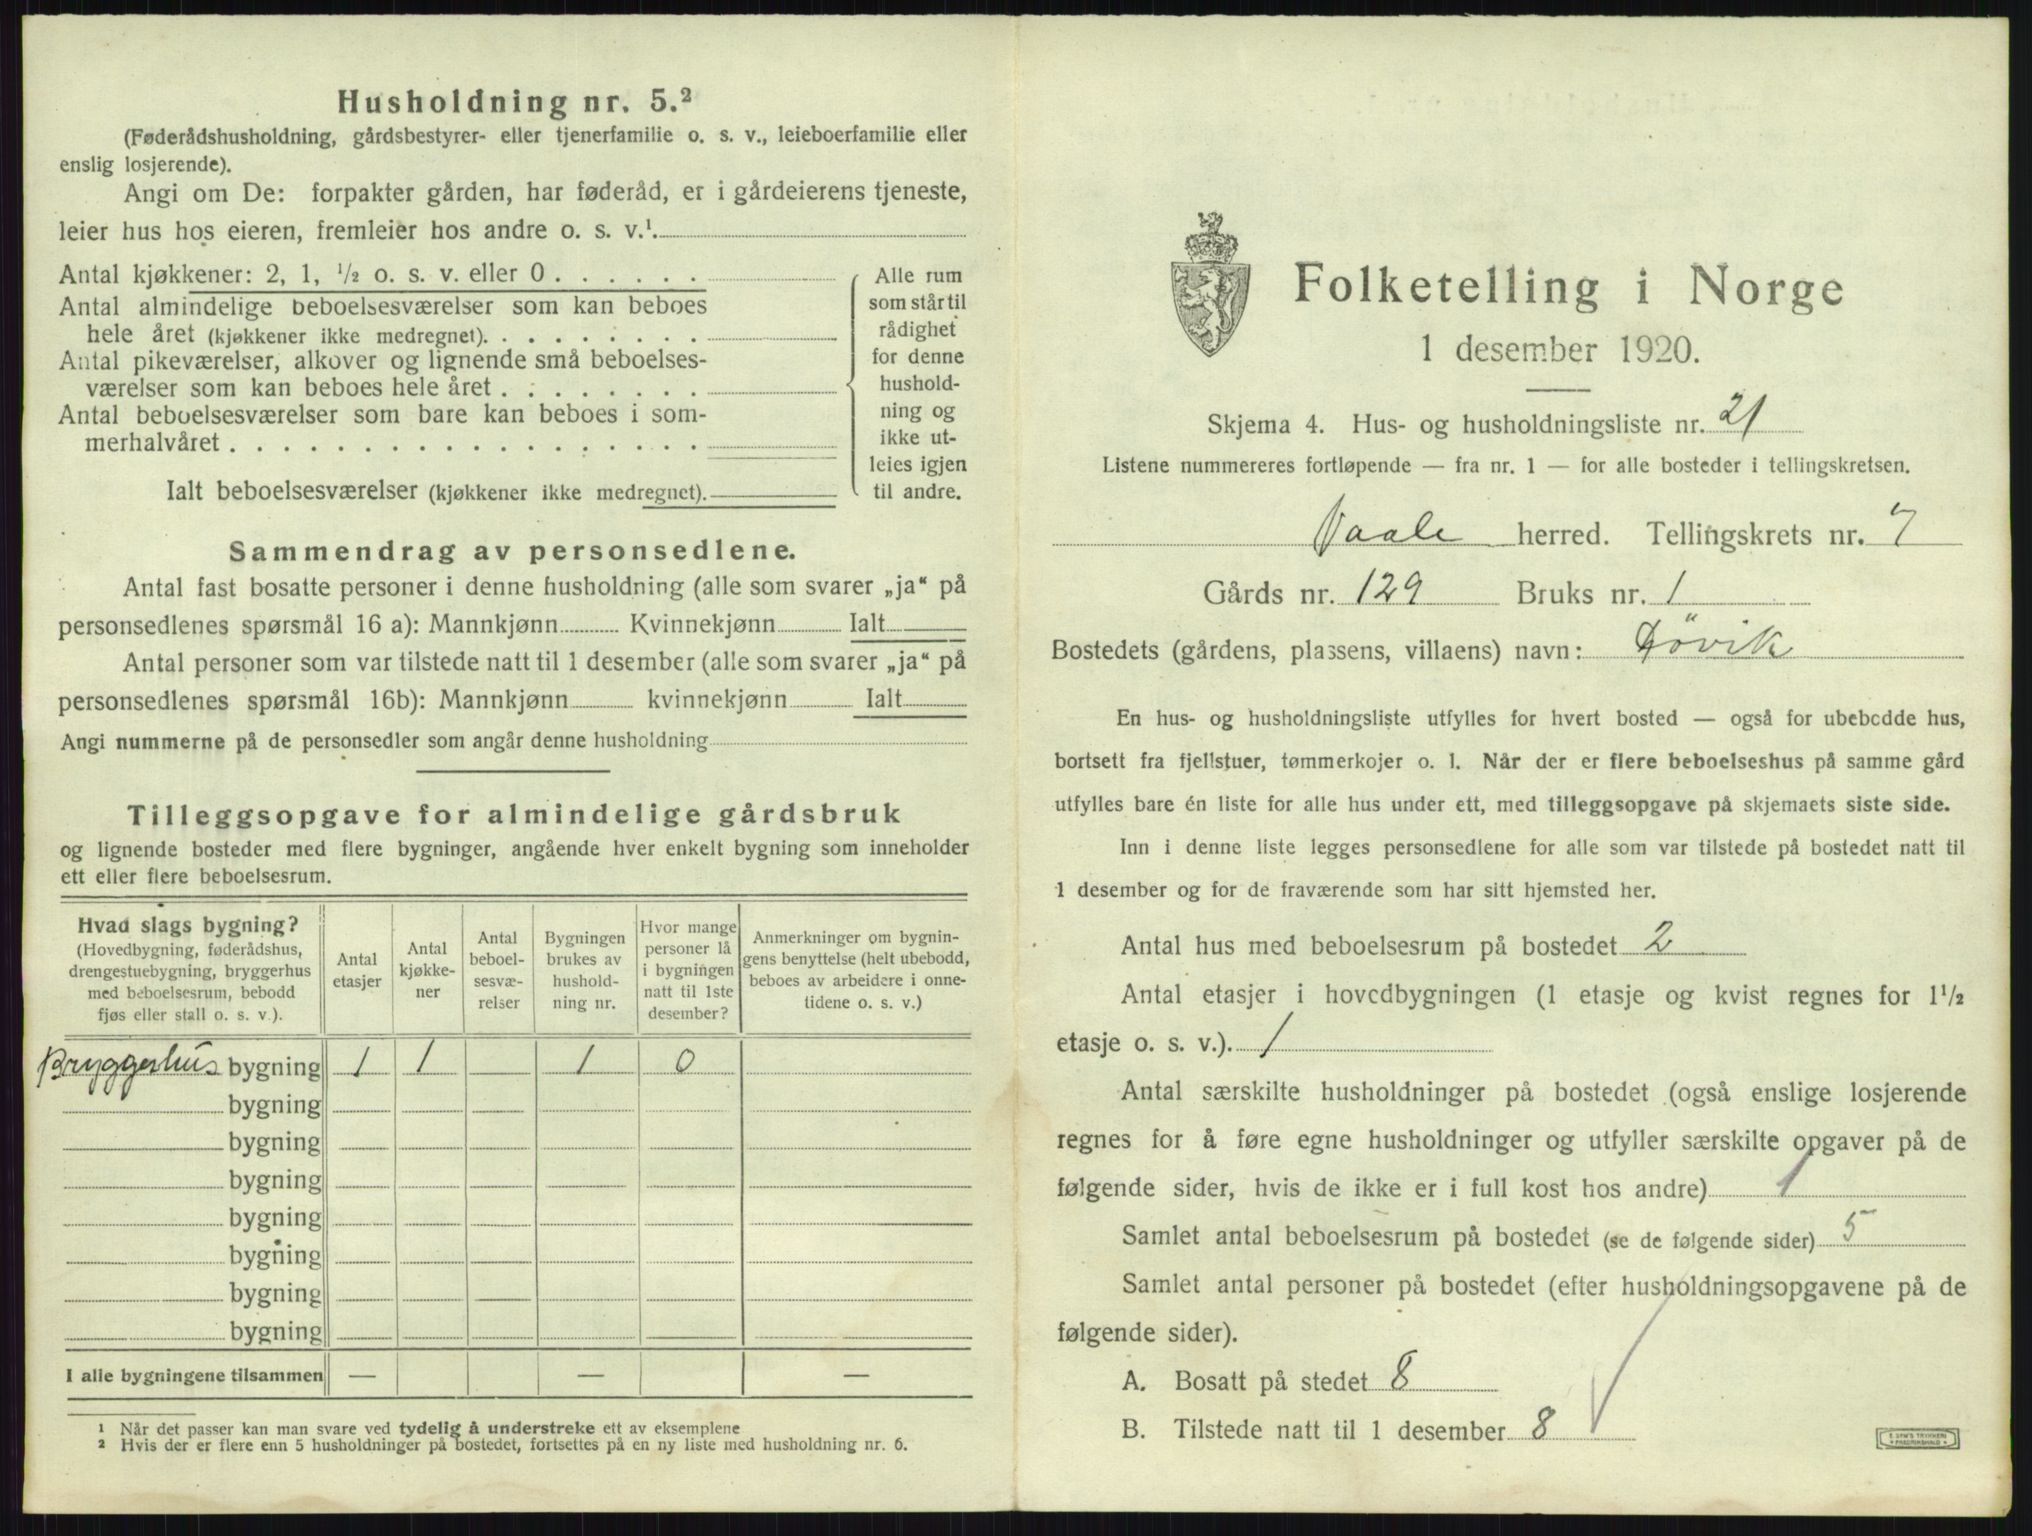 Husholdning nr. 5.²
(Føderådshusholdning, gårdsbestyrer- eller tjenerfamilie o. s. v., leieboerfamilie eller
enslig losjerende).
Angi om De: forpakter gården, har føderåd, er i gårdeierens tjeneste,
leier hus hos eieren, fremleier hos andre o. s. v.¹.
Antal kjøkkener: 2, 1, ½ o. s. v. eller 0 . . . . . .
Antal almindelige beboelsesværelser som kan beboes
hele året (kjøkkener ikke medregnet). . . . . . . . .
Antal pikeværelser, alkover og lignende små beboelses-
værelser som kan beboes hele året . . . . . . . .
Antal beboelsesværelser som bare kan beboes i som-
merhalvåret . . . . . . . . . . . . . . . . . .
Ialt beboelsesværelser (kjøkkener ikke medregnet).
Alle rum
som står til
rådighet
for denne
hushold-
ning og
ikke ut-
leies igjen
til andre.
Sammendrag av personsedlene.
Antal fast bosatte personer i denne husholdning (alle som svarer „ja“ på
personsedlenes spørsmål 16 a): Mannkjønn Kvinnekjønn Ialt
Antal personer som var tilstede natt til 1 desember (alle som svarer „ja“ på
personsedlenes spørsmål 16b): Mannkjønn kvinnekjønn Ialt
Angi nummerne på de personsedler som angår denne husholdning
Tilleggsopgave for almindelige gårdsbruk
og lignende bosteder med flere bygninger, angående hver enkelt bygning som inneholder
ett eller flere beboelsesrum.
Hvad slags bygning?
(Hovedbygning, føderådshus,
drengestuebygning, bryggerhus
med beboelsesrum, bebodd
fjøs eller stall o. s. v.).
Antal
etasjer
Antal
kjøkke-
ner
Antal
beboel-
sesvæ-
relser
Bygningen
brukes av
hushold-
ning nr.
Hvor mange
personer lå
i bygningen
natt til 1ste
desember?
Anmerkninger om bygnin-
gens benyttelse (helt ubebodd,
beboes av arbeidere i onne-
tidene o. s. v.)
Bryggerhus bygning 1 1 1 0
bygning
bygning
bygning
bygning
bygning
bygning
bygning
I alle bygningene tilsammen — — —
¹ Når det passer kan man svare ved tydelig å understreke ett av eksemplene
² Hvis der er flere enn 5 husholdninger på bostedet, fortsettes på en ny liste med husholdning nr. 6.
Folketelling i Norge
1 desember 1920.
Skjema 4. Hus- og husholdningsliste nr. 21
Listene nummereres fortløpende — fra nr. 1 — for alle bosteder i tellingskretsen.
Vaale herred. Tellingskrets nr. 7
Gårds nr. 129 Bruks nr. 1
Bostedets (gårdens, plassens, villaens) navn: Løvik
En hus- og husholdningsliste utfylles for hvert bosted — også for ubebodde hus,
bortsett fra fjellstuer, tømmerkojer o. l. Når der er flere beboelseshus på samme gård
utfylles bare én liste for alle hus under ett, med tilleggsopgave på skjemaets siste side.
Inn i denne liste legges personsedlene for alle som var tilstede på bostedet natt til
1 desember og for de fraværende som har sitt hjemsted her.
Antal hus med beboelsesrum på bostedet 2
Antal etasjer i hovedbygningen (1 etasje og kvist regnes for 1½
etasje o. s. v.). 1
Antal særskilte husholdninger på bostedet (også enslige losjerende
regnes for å føre egne husholdninger og utfyller særskilte opgaver på de
følgende sider, hvis de ikke er i full kost hos andre) 1
Samlet antal beboelsesrum på bostedet (se de følgende sider) 5
Samlet antal personer på bostedet (efter husholdningsopgavene på de
følgende sider).
A. Bosatt på stedet 8
B. Tilstede natt til 1 desember 8